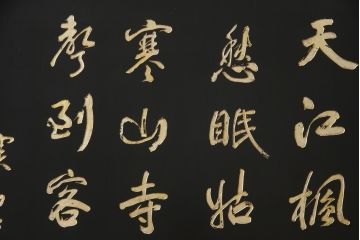 天江楓
愁眠姑
寒山寺
聲到客